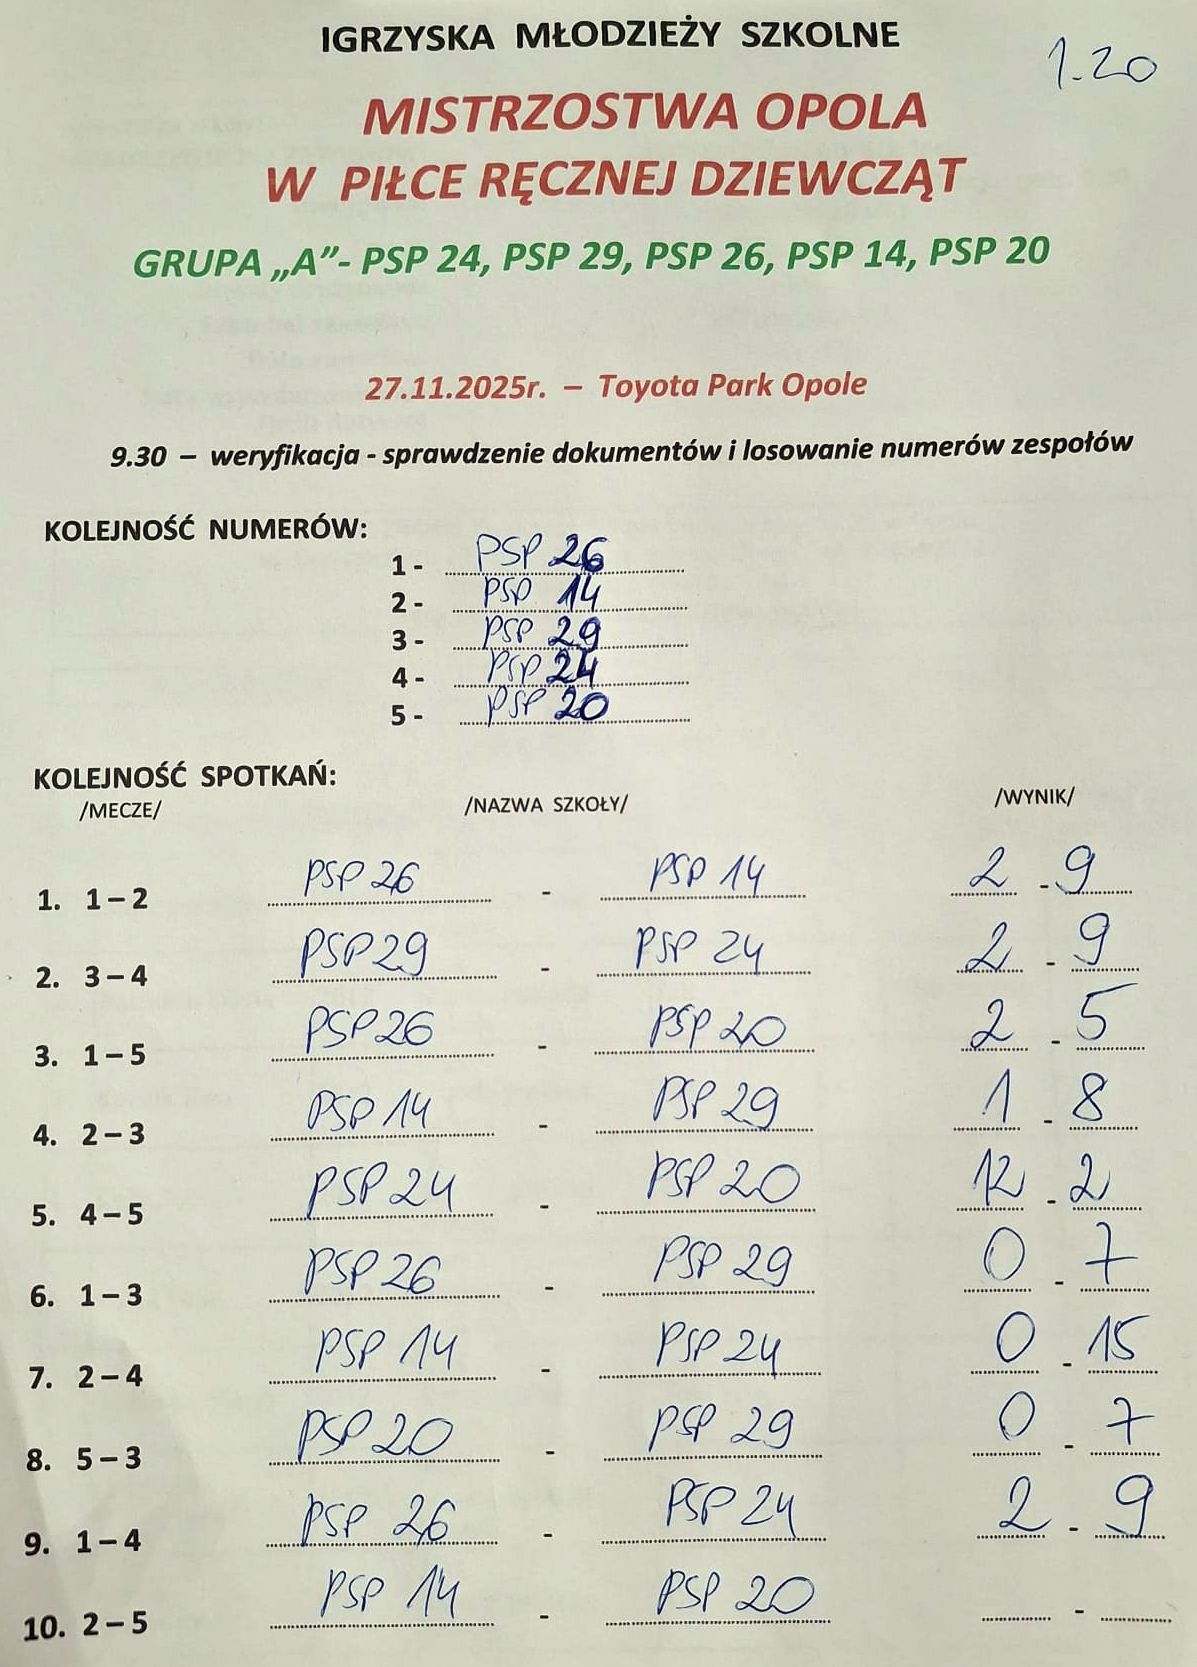 IGRZYSKA MŁODZIEŻY SZKOLNE
1.20
MISTRZOSTWA OPOLA
W PIŁCE RĘCZNEJ DZIEWCZĄT
GRUPA „A”- PSP 24, PSP 29, PSP 26, PSP 14, PSP 20
27.11.2025r. – Toyota Park Opole
9.30 – weryfikacja - sprawdzenie dokumentów i losowanie numerów zespołów
KOLEJNOŚĆ NUMERÓW:
1 - PSP 26
2 - PSP 14
3 - PSP 29
4 - PSP 24
5 - PSP 20
KOLEJNOŚĆ SPOTKAŃ:
/MECZE/ /NAZWA SZKOŁY/ /WYNIK/
1. 1 – 2 PSP 26 - PSP 14 2 - 9
2. 3 – 4 PSP 29 - PSP 24 2 - 9
3. 1 – 5 PSP 26 - PSP 20 2 - 5
4. 2 – 3 PSP 14 - PSP 29 1 - 8
5. 4 – 5 PSP 24 - PSP 20 12 - 2
6. 1 – 3 PSP 26 - PSP 29 0 - 7
7. 2 – 4 PSP 14 - PSP 24 0 - 15
8. 5 – 3 PSP 20 - PSP 29 0 - 7
9. 1 – 4 PSP 26 - PSP 24 2 - 9
10. 2 – 5 PSP 14 - PSP 20 -